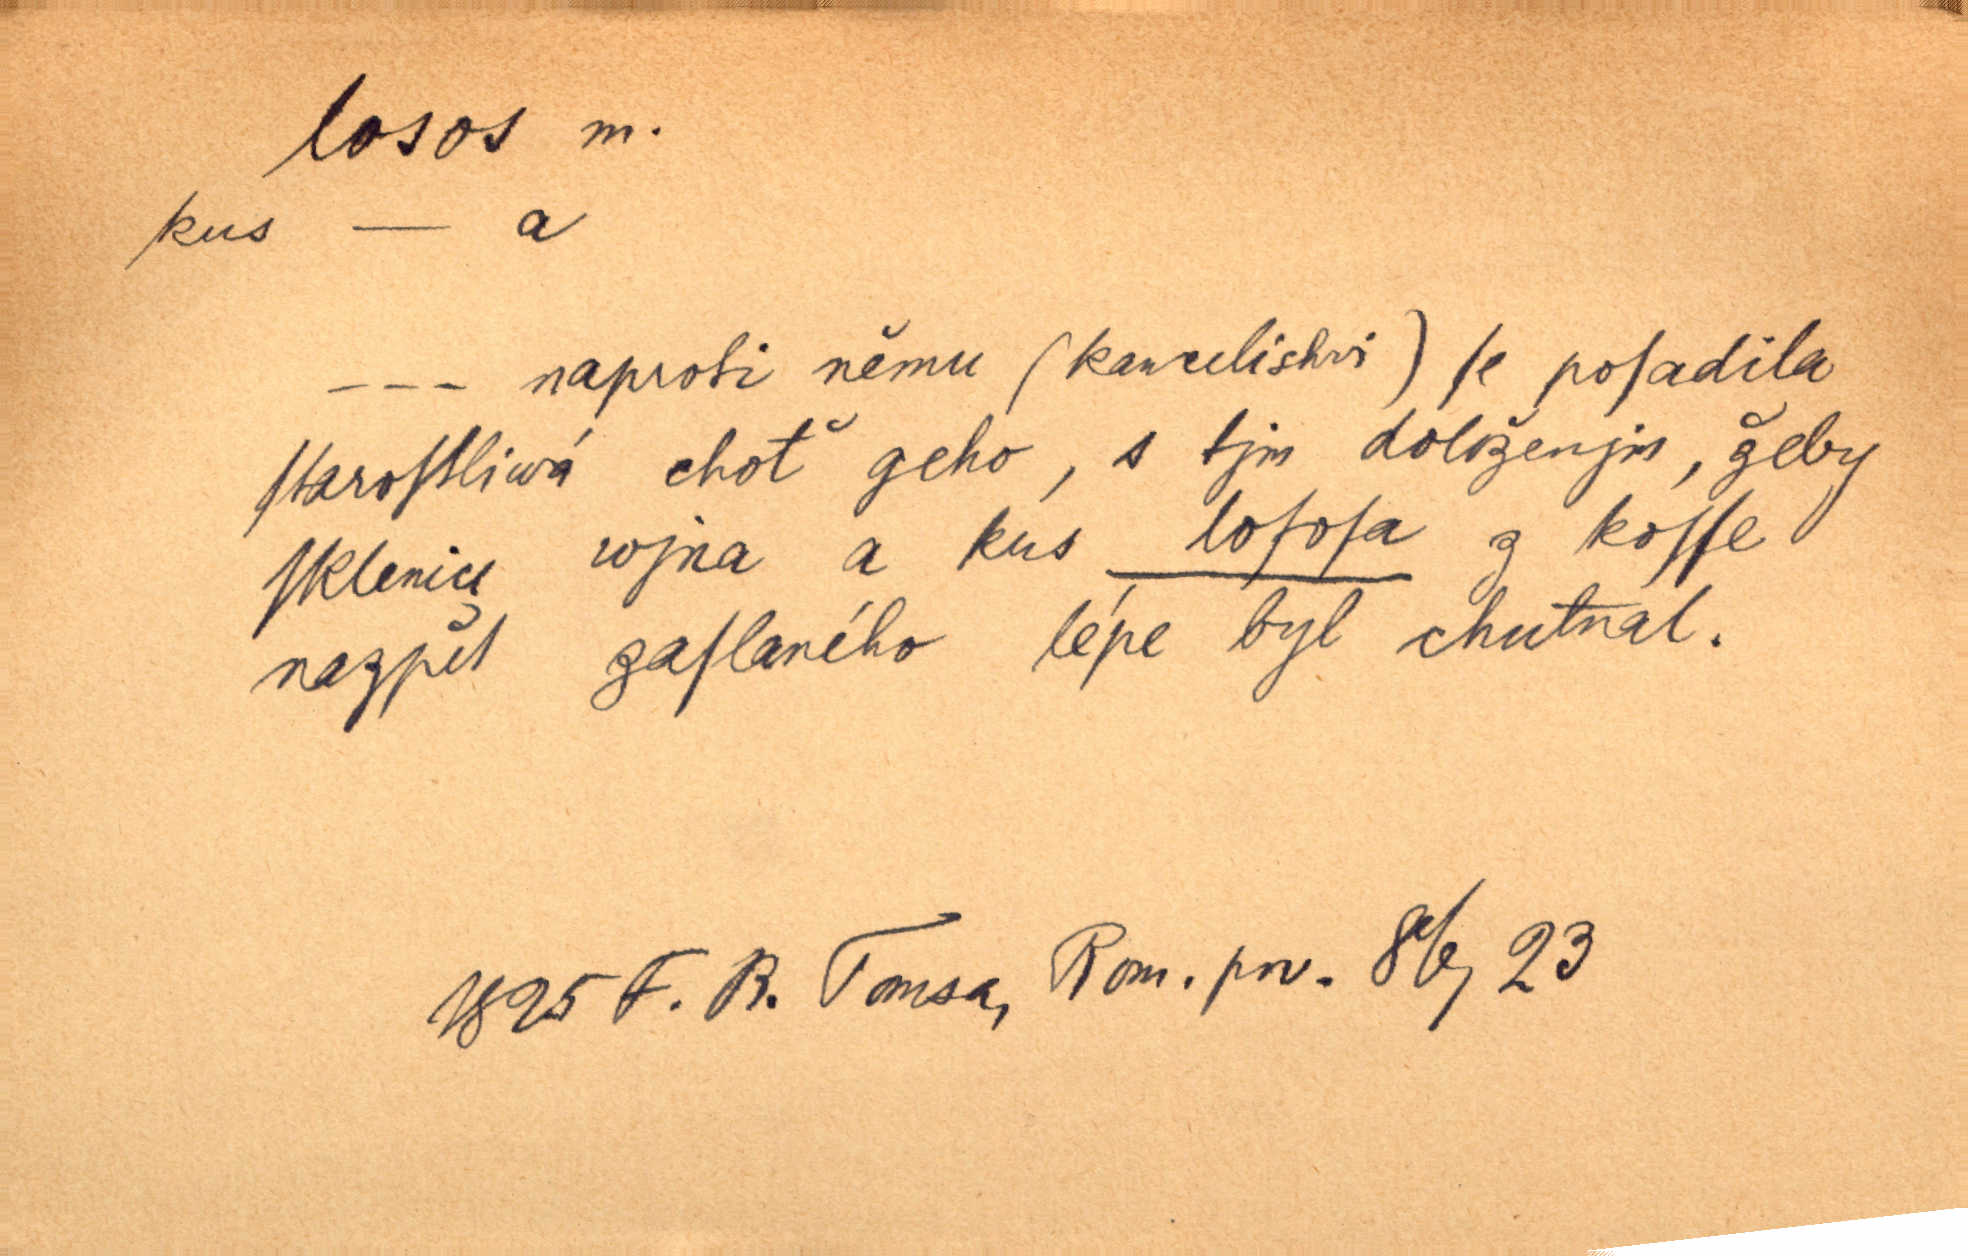 losos m.
kus — a
--- naproti němu (kancelistovi) ſe poſadila
ſtaroſtliwá choť geho, s tjm doloženjm, žeby
ſklenici wjna a kus loſoſa z koſſe
nazpět zaſlaného lépe byl chutnal.
1825 F. B. Tomsa, Rom. pov. 23